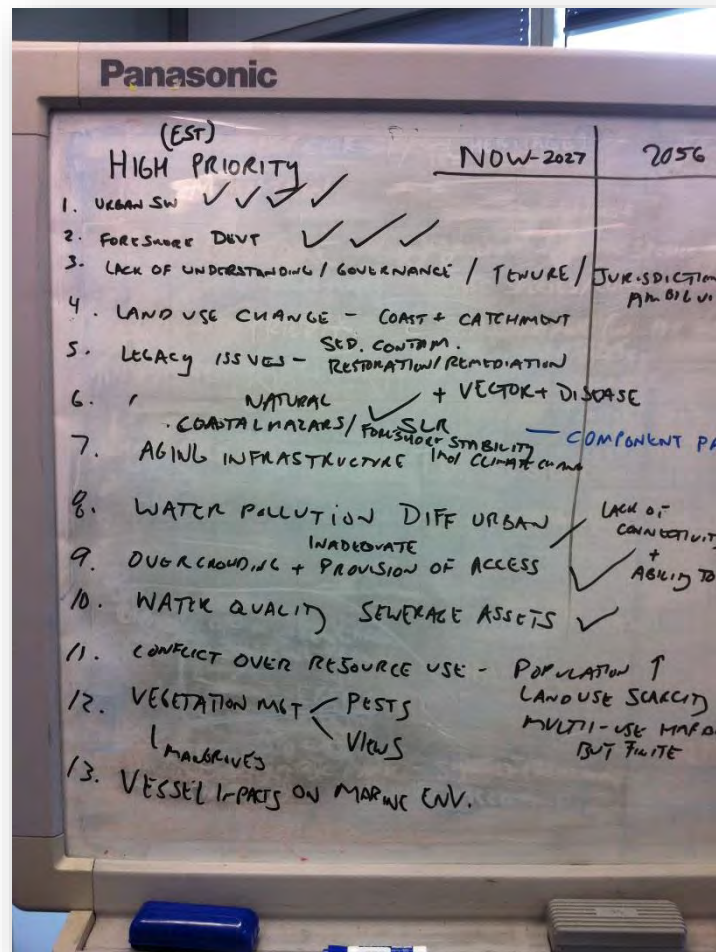 Panasonic
(EST)
HIGH PRIORITY NOW-2027 2056
1. URBAN SW ✓ ✓ ✓ ✓
2. FORESHORE DEVT ✓ ✓ ✓
3. LACK OF UNDERSTANDING / GOVERNANCE / TENURE / JURISDICTION
4. LAND USE CHANGE - COAST + CATCHMENT
5. LEGACY ISSUES - SED. CONTAM.
RESTORATION/REMEDIATION
6. NATURAL ✓ + VECTOR + DISEASE
COASTAL HAZARS / SLR
FORESHORE STABILITY — COMPONENT PA
7. AGING INFRASTRUCTURE CLIMATE
8. WATER POLLUTION DIFF URBAN
LACK OF
CONNECTIVITY
+
ABILITY TO
INADEQUATE
9. OVERCROWDING + PROVISION OF ACCESS ✓
10. WATER QUALITY SEWERAGE ASSETS ✓
11. CONFLICT OVER RESOURCE USE - POPULATION ↑
LAND USE SCARCITY
MULTI-USE
BUT FINITE
12. VEGETATION MGT < PESTS
VIEWS
MANGRIVES
13. VESSEL IMPACTS ON MARINE ENV.